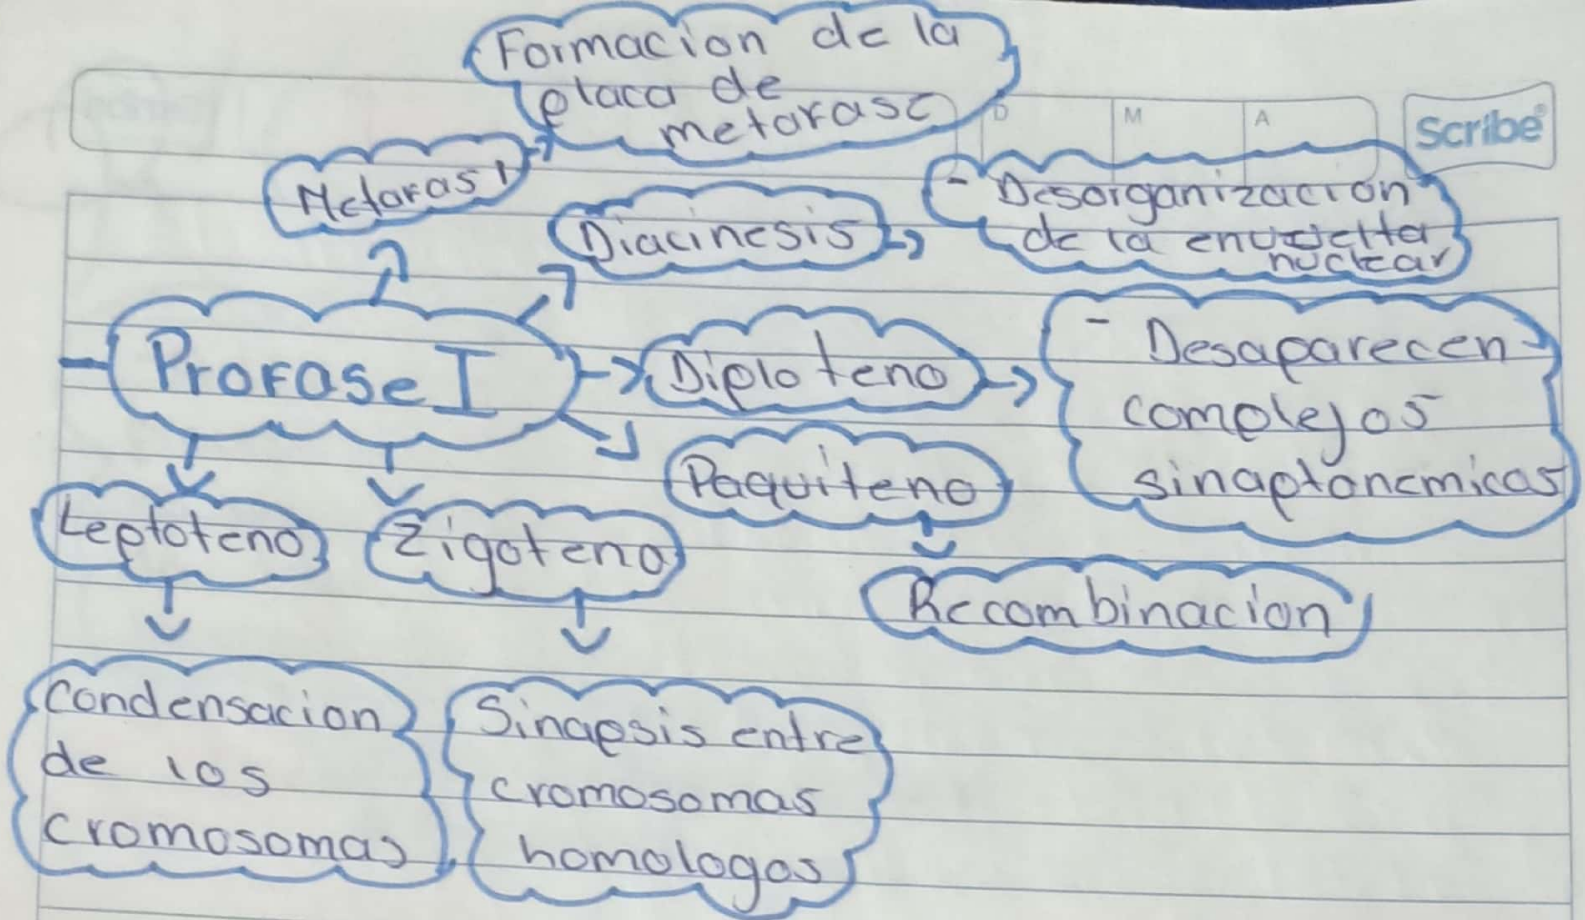 Formacion de la
placa de
metafase
D
M
A
Scribe®
Metafas I
Diacinesis
- Desorganizacion
de la envuelta
nuclear
Profase I
Diploteno
- Desaparecen
complejos
sinaptonemicos
Paquiteno
Recombinacion
Leptoteno
Zigoteno
Condensacion
de los
cromosomas
Sinapsis entre
cromosomas
homologos